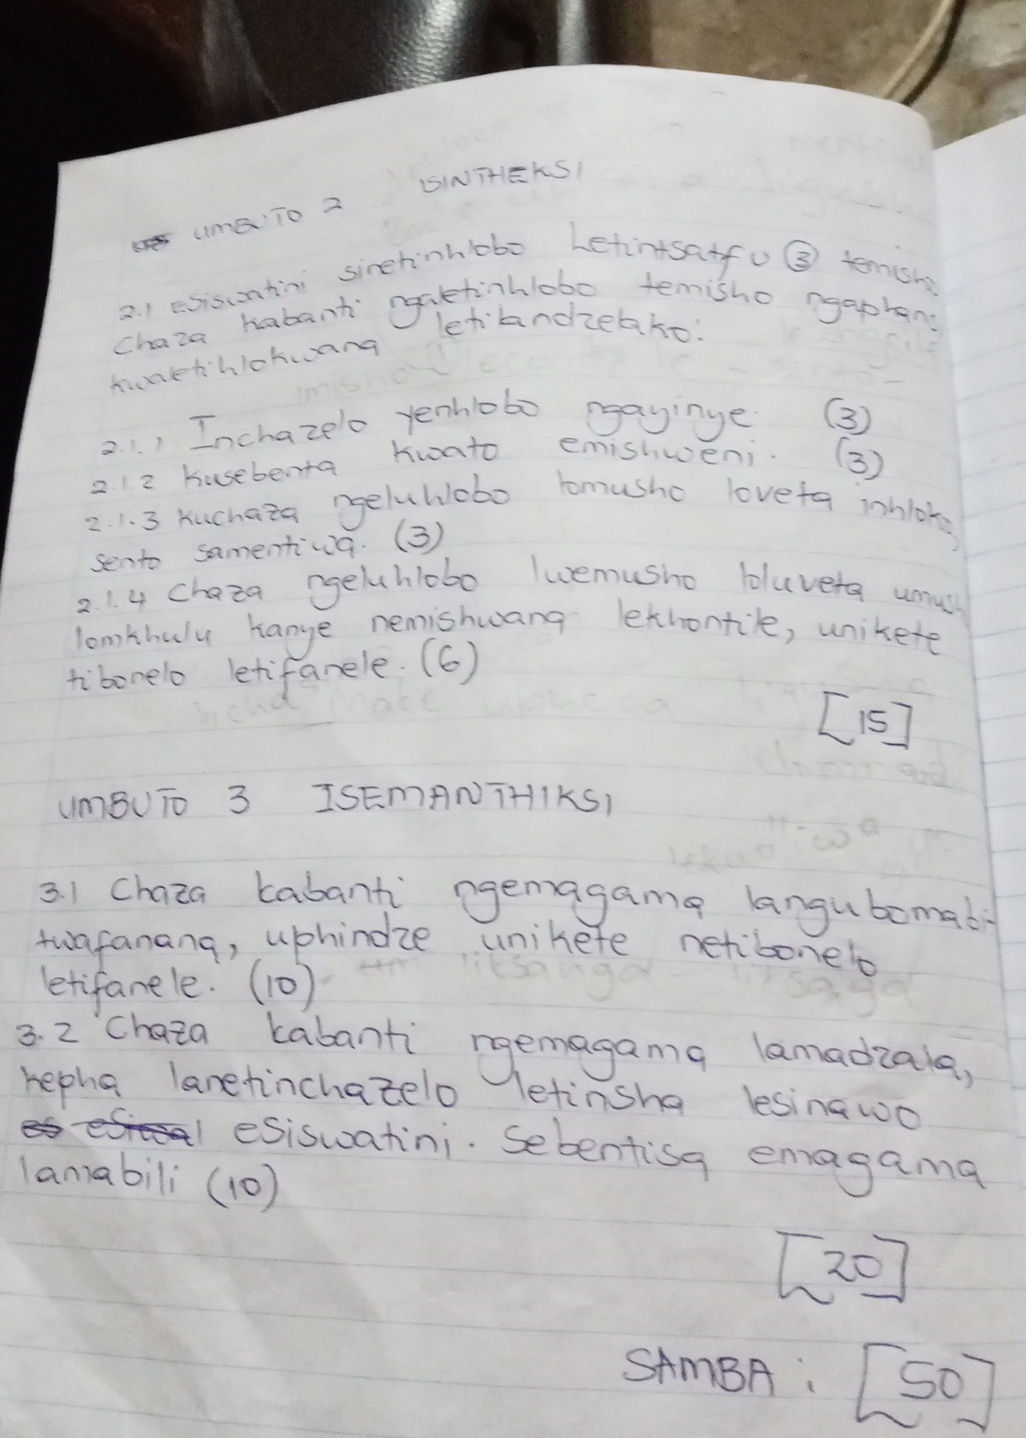 UMBUTO 2 ISINTHEKSI
2.1 esiswatini sinetinhlobo letintsatfu (3) temisho
Chaza kabanti ngaletinhlobo temisho ngaphans
kwaletihlokwana letilandzelako:
2.1.1 Inchazelo yenhlobo ngayinye. (3)
2.1.2 Kusebenta kwato emishweni. (3)
2.1.3 Kuchaza ngeluhlobo lomusho loveta inhloko,
sento samentiwa. (3)
2.1.4 Chaza ngeluhlobo lwemusho loluveta umush
lomkhulu kanye nemishwana lekhontile, unikete
tibonelo letifanele. (6)
[15]
UMBUTO 3 ISEMANTHIKSI
3.1 Chaza kabanti ngemagama langubomabi-
twafanana, uphindze unikete netibonelo
letifanele. (10)
3.2 Chaza kabanti ngemagama lamadzala,
kepha lanetinchazelo letinsha lesinawo
esiswatini. Sebentisa emagama
lamabili (10)
[20]
SAMBA : [50]